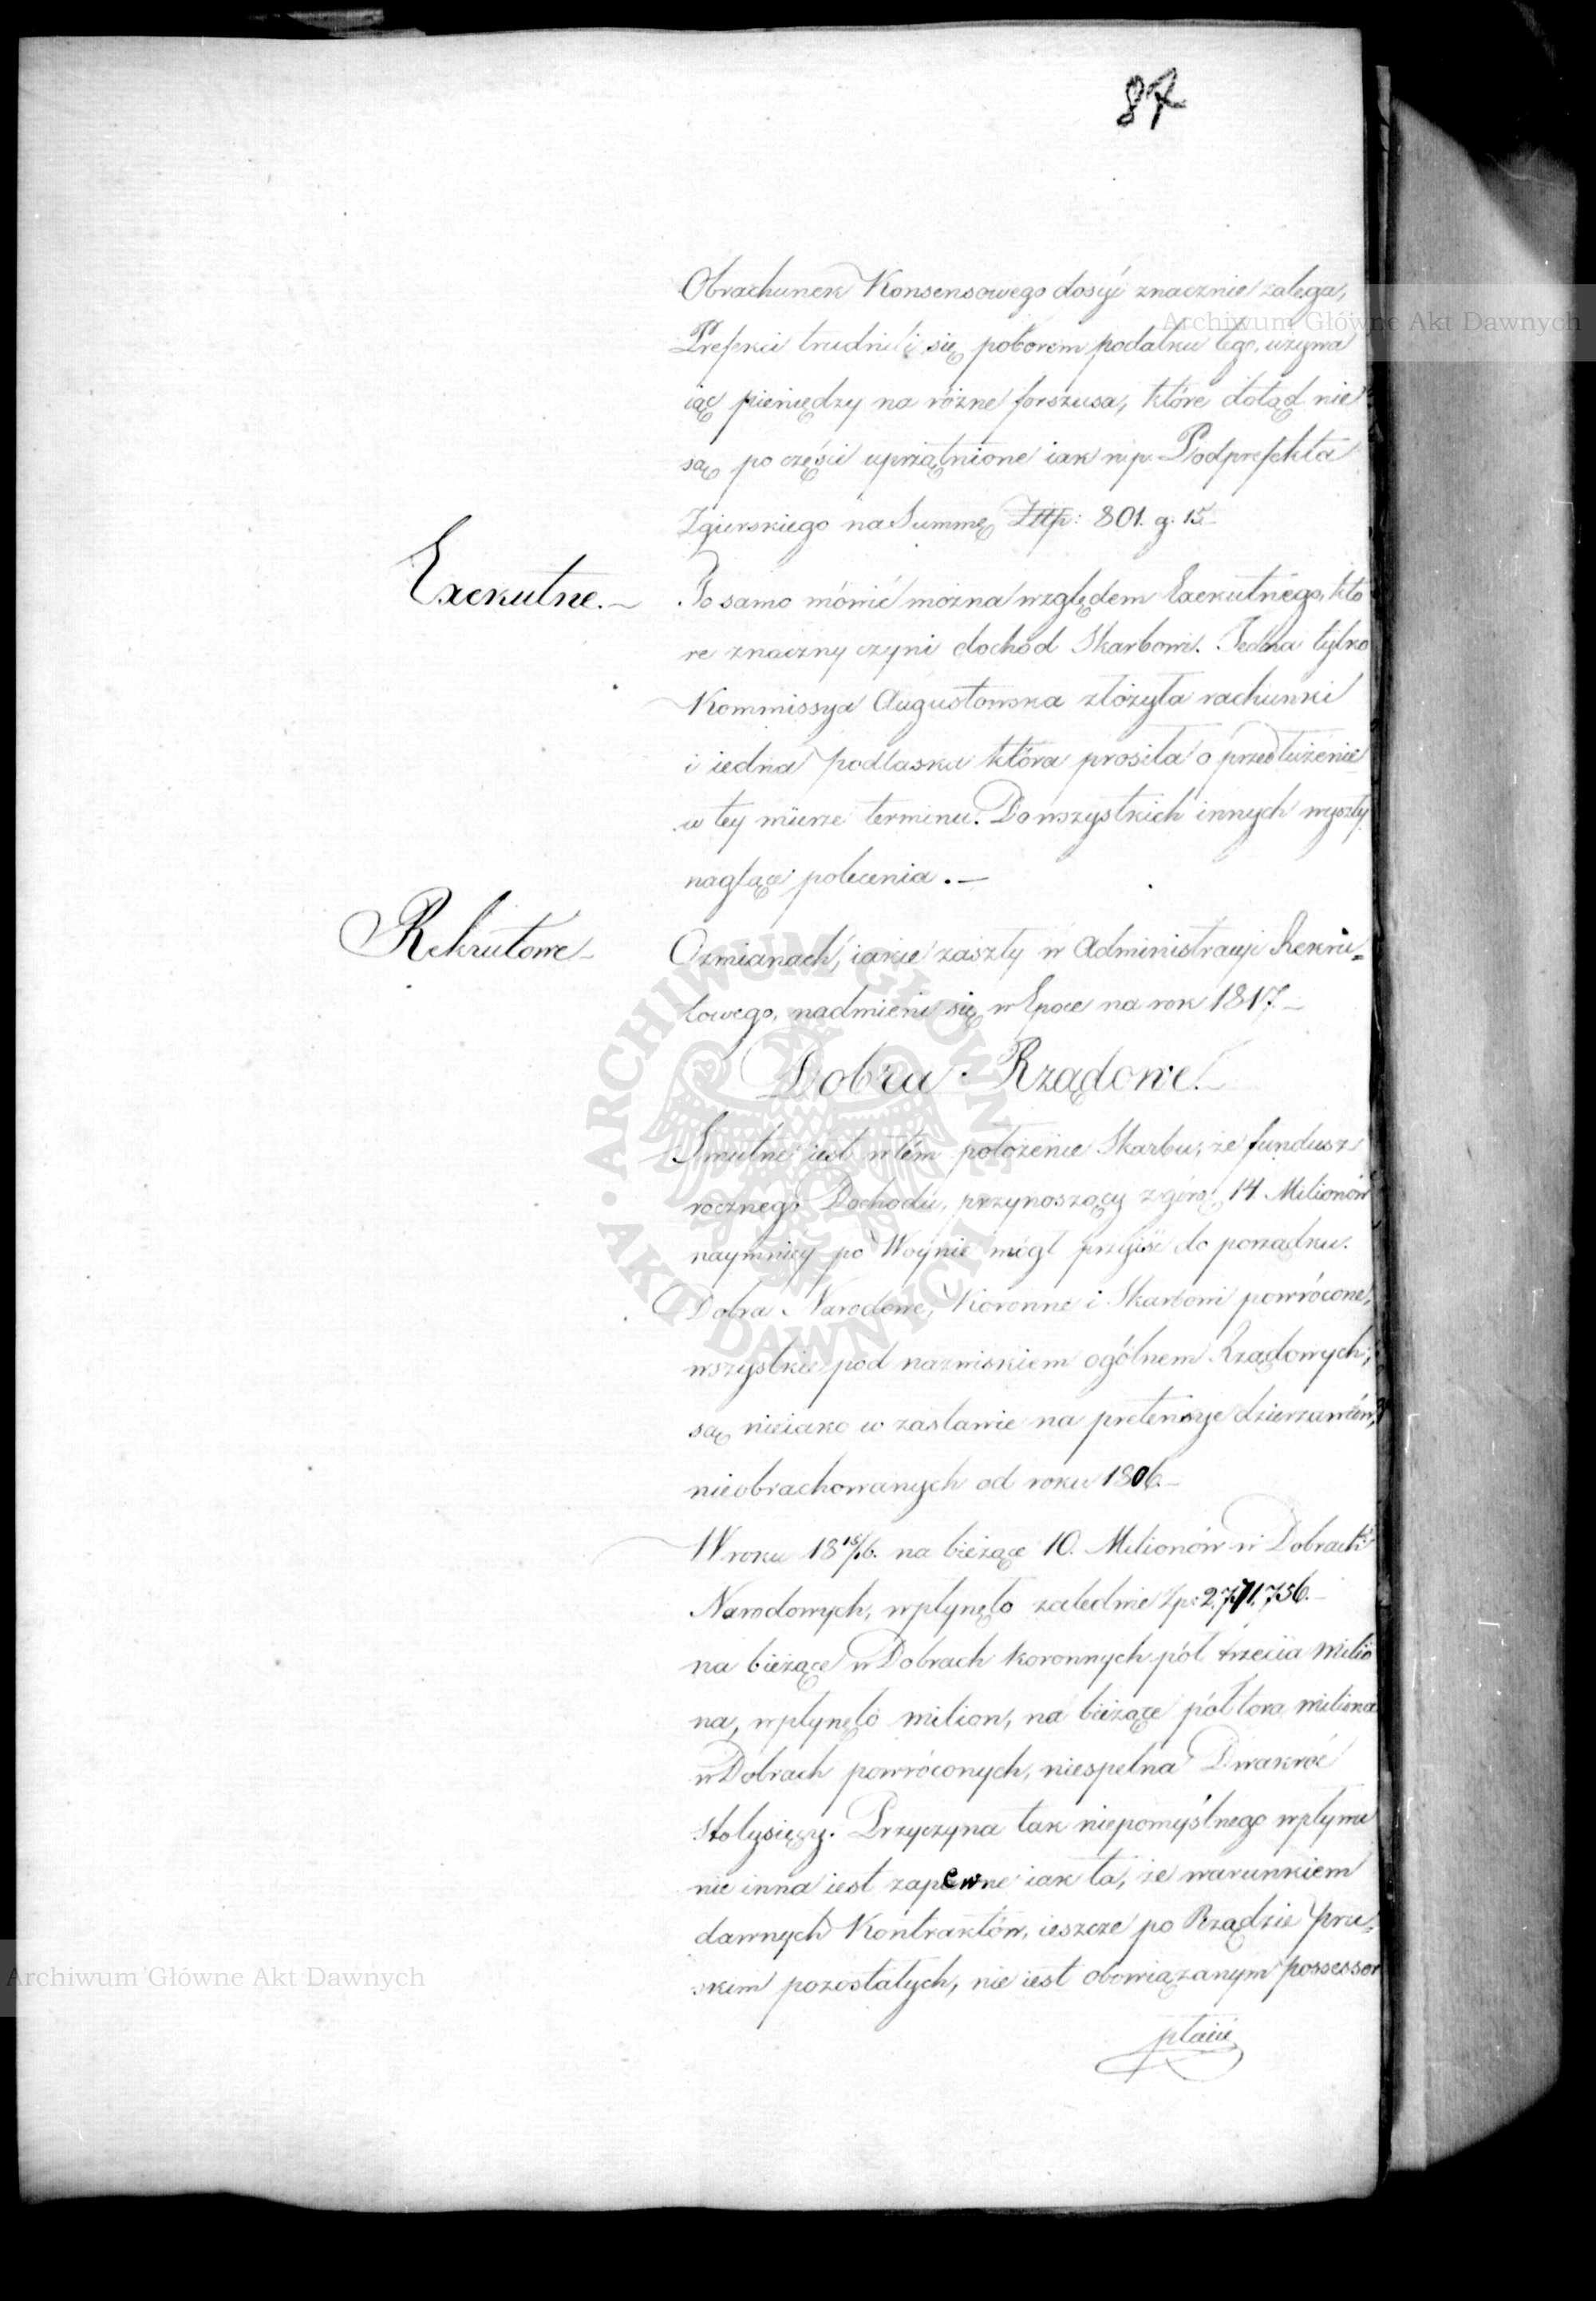 87
Obrachunek Konsensowego dosyć znacznie zalega,
Prefekci trudnili się poborem podatku tego, używa
iąc pieniędzy na różne forszusa, które dotąd nie
są po części uprzątnione iak np. Podprefekta
Zgierskiego na Summę Złłp: 801. g: 15.
Exekutne.
To samo mówić można względem Exekutnego, któ
re znaczny czyni dochód Skarbowi. Jedna tylko
Kommissya Augustowska złożyła rachunki
i iedna podlaska która prosiła o przedłużenie
w tey mierze terminu. Do wszystkich innych wyszły
naglące polecenia. —
Rekrutowe
O zmianach, iakie zaszły w Administracyi Rekru=
towego, nadmieni się w Epoce na rok 1817.
Dobra Rządowe.
Smutne iest w tém położenie Skarbu, że fundusz
rocznego Dochodu, przynoszący zgórą 14 Milionów
naymniey po Woynie mógł przyiść do porządku.
Dobra Narodowe, Koronne i Skarbowi powrócone,
wszystkie pod nazwiskiem ogólnem Rządowych,
są nieiako w zastawie na pretensye dzierzawców,
nieobrachowanych od roku 1806.
W roku 18 15/16. na bieżące 10. Milionów w Dobrach
Narodowych, wpłynęło zaledwie Zp: 2,771,756.
na bieżące w Dobrach koronnych pół trzecia Milio
na, wpłynęło milion, na bieżące półtora miliona
w Dobrach powróconych, niespełna Dwakroć
stotysięcy. Przyczyna tak niepomyślnego wpływu
nie inna iest zapewne iak ta, że warunkiem
dawnych Kontraktów, ieszcze po Rządzie Pru=
skim pozostałych, nie iest obowiązanym possessor
płacić
Archiwum Główne Akt Dawnych
Archiwum Główne Akt Dawnych
ARCHIWUM GŁÓWNE AKT DAWNYCH